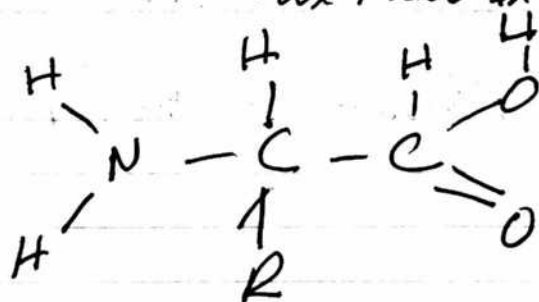 H
H H H
N - C - C O
H R O